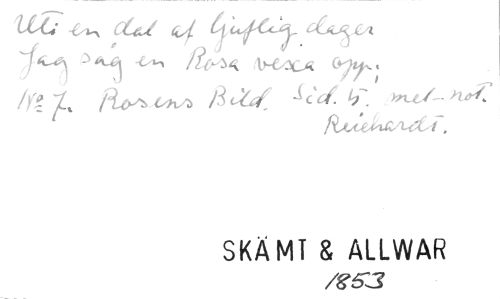 Uti en dal af ljuflig dager
Jag såg en Rosa vexa opp;
No 7. Rosens Bild. Sid. 15. met-not.
Reichardt.
SKÄMT & ALLWAR
1853